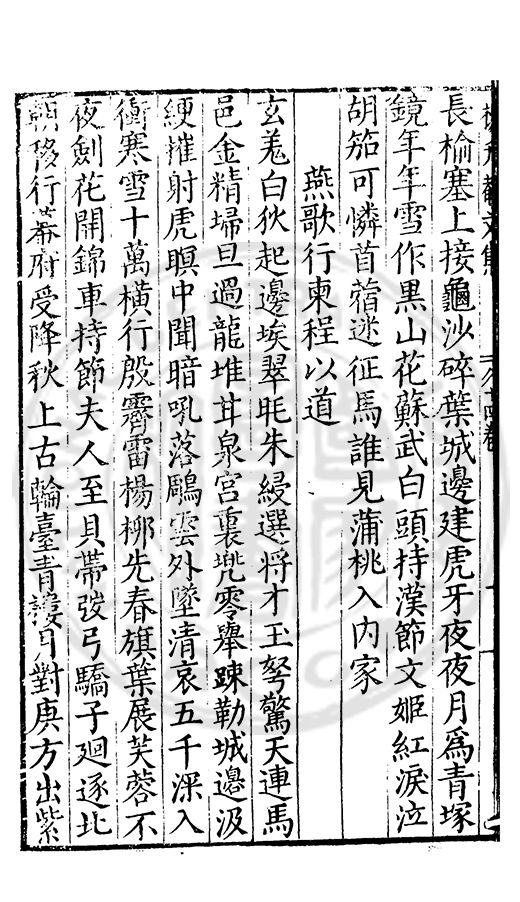 長榆塞上接龜沙碎葉城邊建虎牙夜夜月爲青塚
鏡年年雪作黒山花蘇武白頭持漢節文姬紅淚泣
胡笳可憐苜蓿迷征馬誰見蒲桃入内家
燕歌行柬程以道
玄菟白狄起邊埃翠眊朱縵選将才玉弩驚天連馬
邑金精埽旦過龍堆甘泉宫裏兠零舉踈勒城邊汲
綆摧射虎暝中聞暗吼落鵰雲外墜清哀五千深入
衝寒雪十萬橫行殷霽雷楊栁先春旗葉展芙蓉不
夜劍花開錦車持節夫人至貝帶弢弓驕子廻逐北
朝移行幕府受降秋上古輪臺青 月對庚方出紫